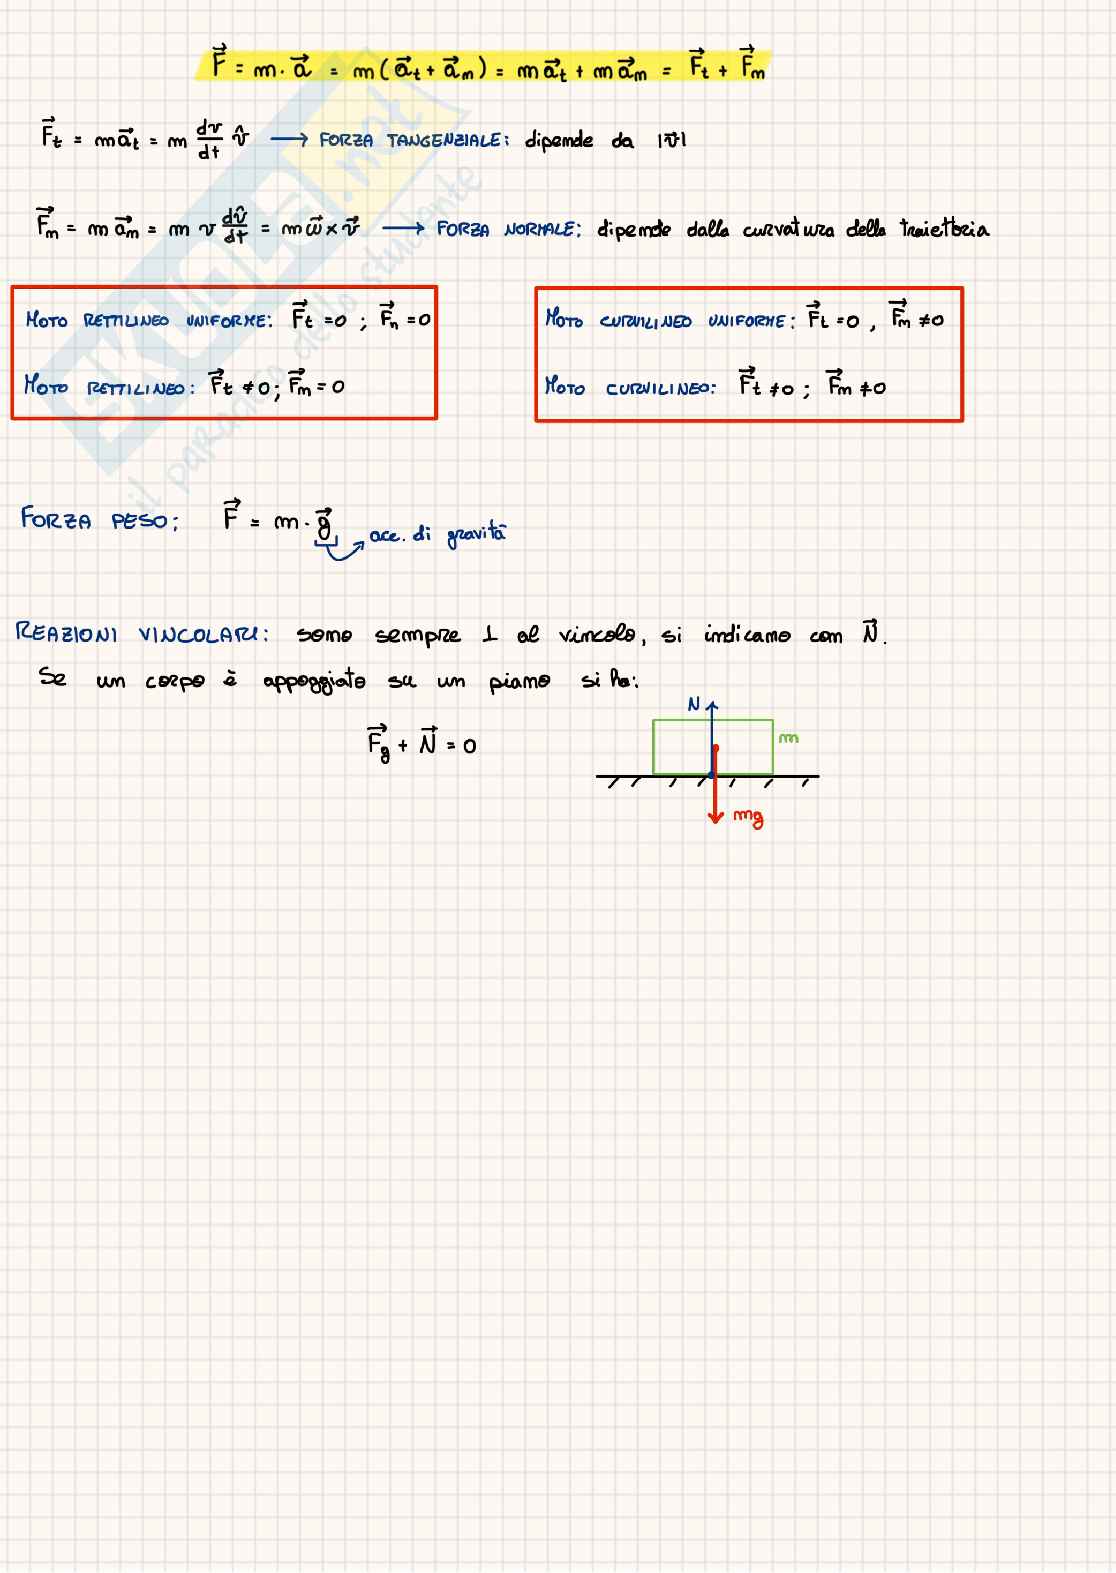 F⃗ = m · a⃗ = m (a⃗t + a⃗n) = m a⃗t + m a⃗n = F⃗t + F⃗n
F⃗t = m a⃗t = m dv/dt v̂ → FORZA TANGENZIALE: dipende da |v⃗|
F⃗n = m a⃗n = m v dv̂/dt = m ω⃗ × v⃗ → FORZA NORMALE: dipende dalla curvatura della traiettoria
MOTO RETTILINEO UNIFORME: F⃗t = 0 ; F⃗n = 0
MOTO RETTILINEO: F⃗t ≠ 0 ; F⃗n = 0
MOTO CURVILINEO UNIFORME: F⃗t = 0 , F⃗n ≠ 0
MOTO CURVILINEO: F⃗t ≠ 0 ; F⃗n ≠ 0
FORZA PESO: F⃗ = m · g⃗
acc. di gravità
REAZIONI VINCOLARI: sono sempre ⊥ al vincolo, si indicano con N⃗.
Se un corpo è appoggiato su un piano si ha:
F⃗g + N⃗ = 0
N
m
mg
SKUOLA.net
il paradiso dello studente